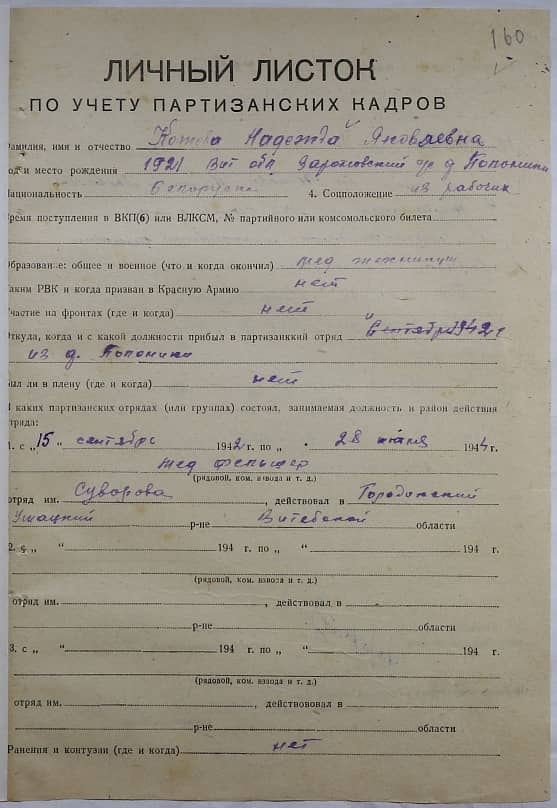 160
ЛИЧНЫЙ ЛИСТОК
ПО УЧЕТУ ПАРТИЗАНСКИХ КАДРОВ
амилия, имя и отчество Надежда Яковлевна
од и место рождений 1921 Вит обл д. Попоники
ациональность белоруска 4. Соцположение из рабочих
ремя поступления в ВКП(б) или ВЛКСМ, № партийного или комсомольского билета
бразование: общее и военное (что и когда окончил) мед техникум
аким РВК и когда призван в Красную Армию нет
частие на фронтах (где и когда) нет
ткуда, когда и с какой должности прибыл в партизанкий отряд в сентябре 1942 г
из д. Попоники
ыл ли в плену (где и когда) нет
каких партизанских отрядах (или группах) состоял, занимаемая должность и район действия
тряда:
1. с „15 “ сентября 1942 г. по „ 28 июня 1944 г.
мед фельшер
(рядовой, ком. взвода и т. д.)
отряд им. Суворова, действовал в Городокский
Ушацкий р-не Витебской области
2. с „ “ 194 г. по „ “ 194 г.
(рядовой, ком. взвода и т. д.)
отряд им. , действовал в
р-не области
3. с „ “ 194 г. по „ “ 194 г.
(рядовой, ком. взвода и т. д.)
отряд им. , действововал в
р-не области
Ранения и контузии (где и когда) нет